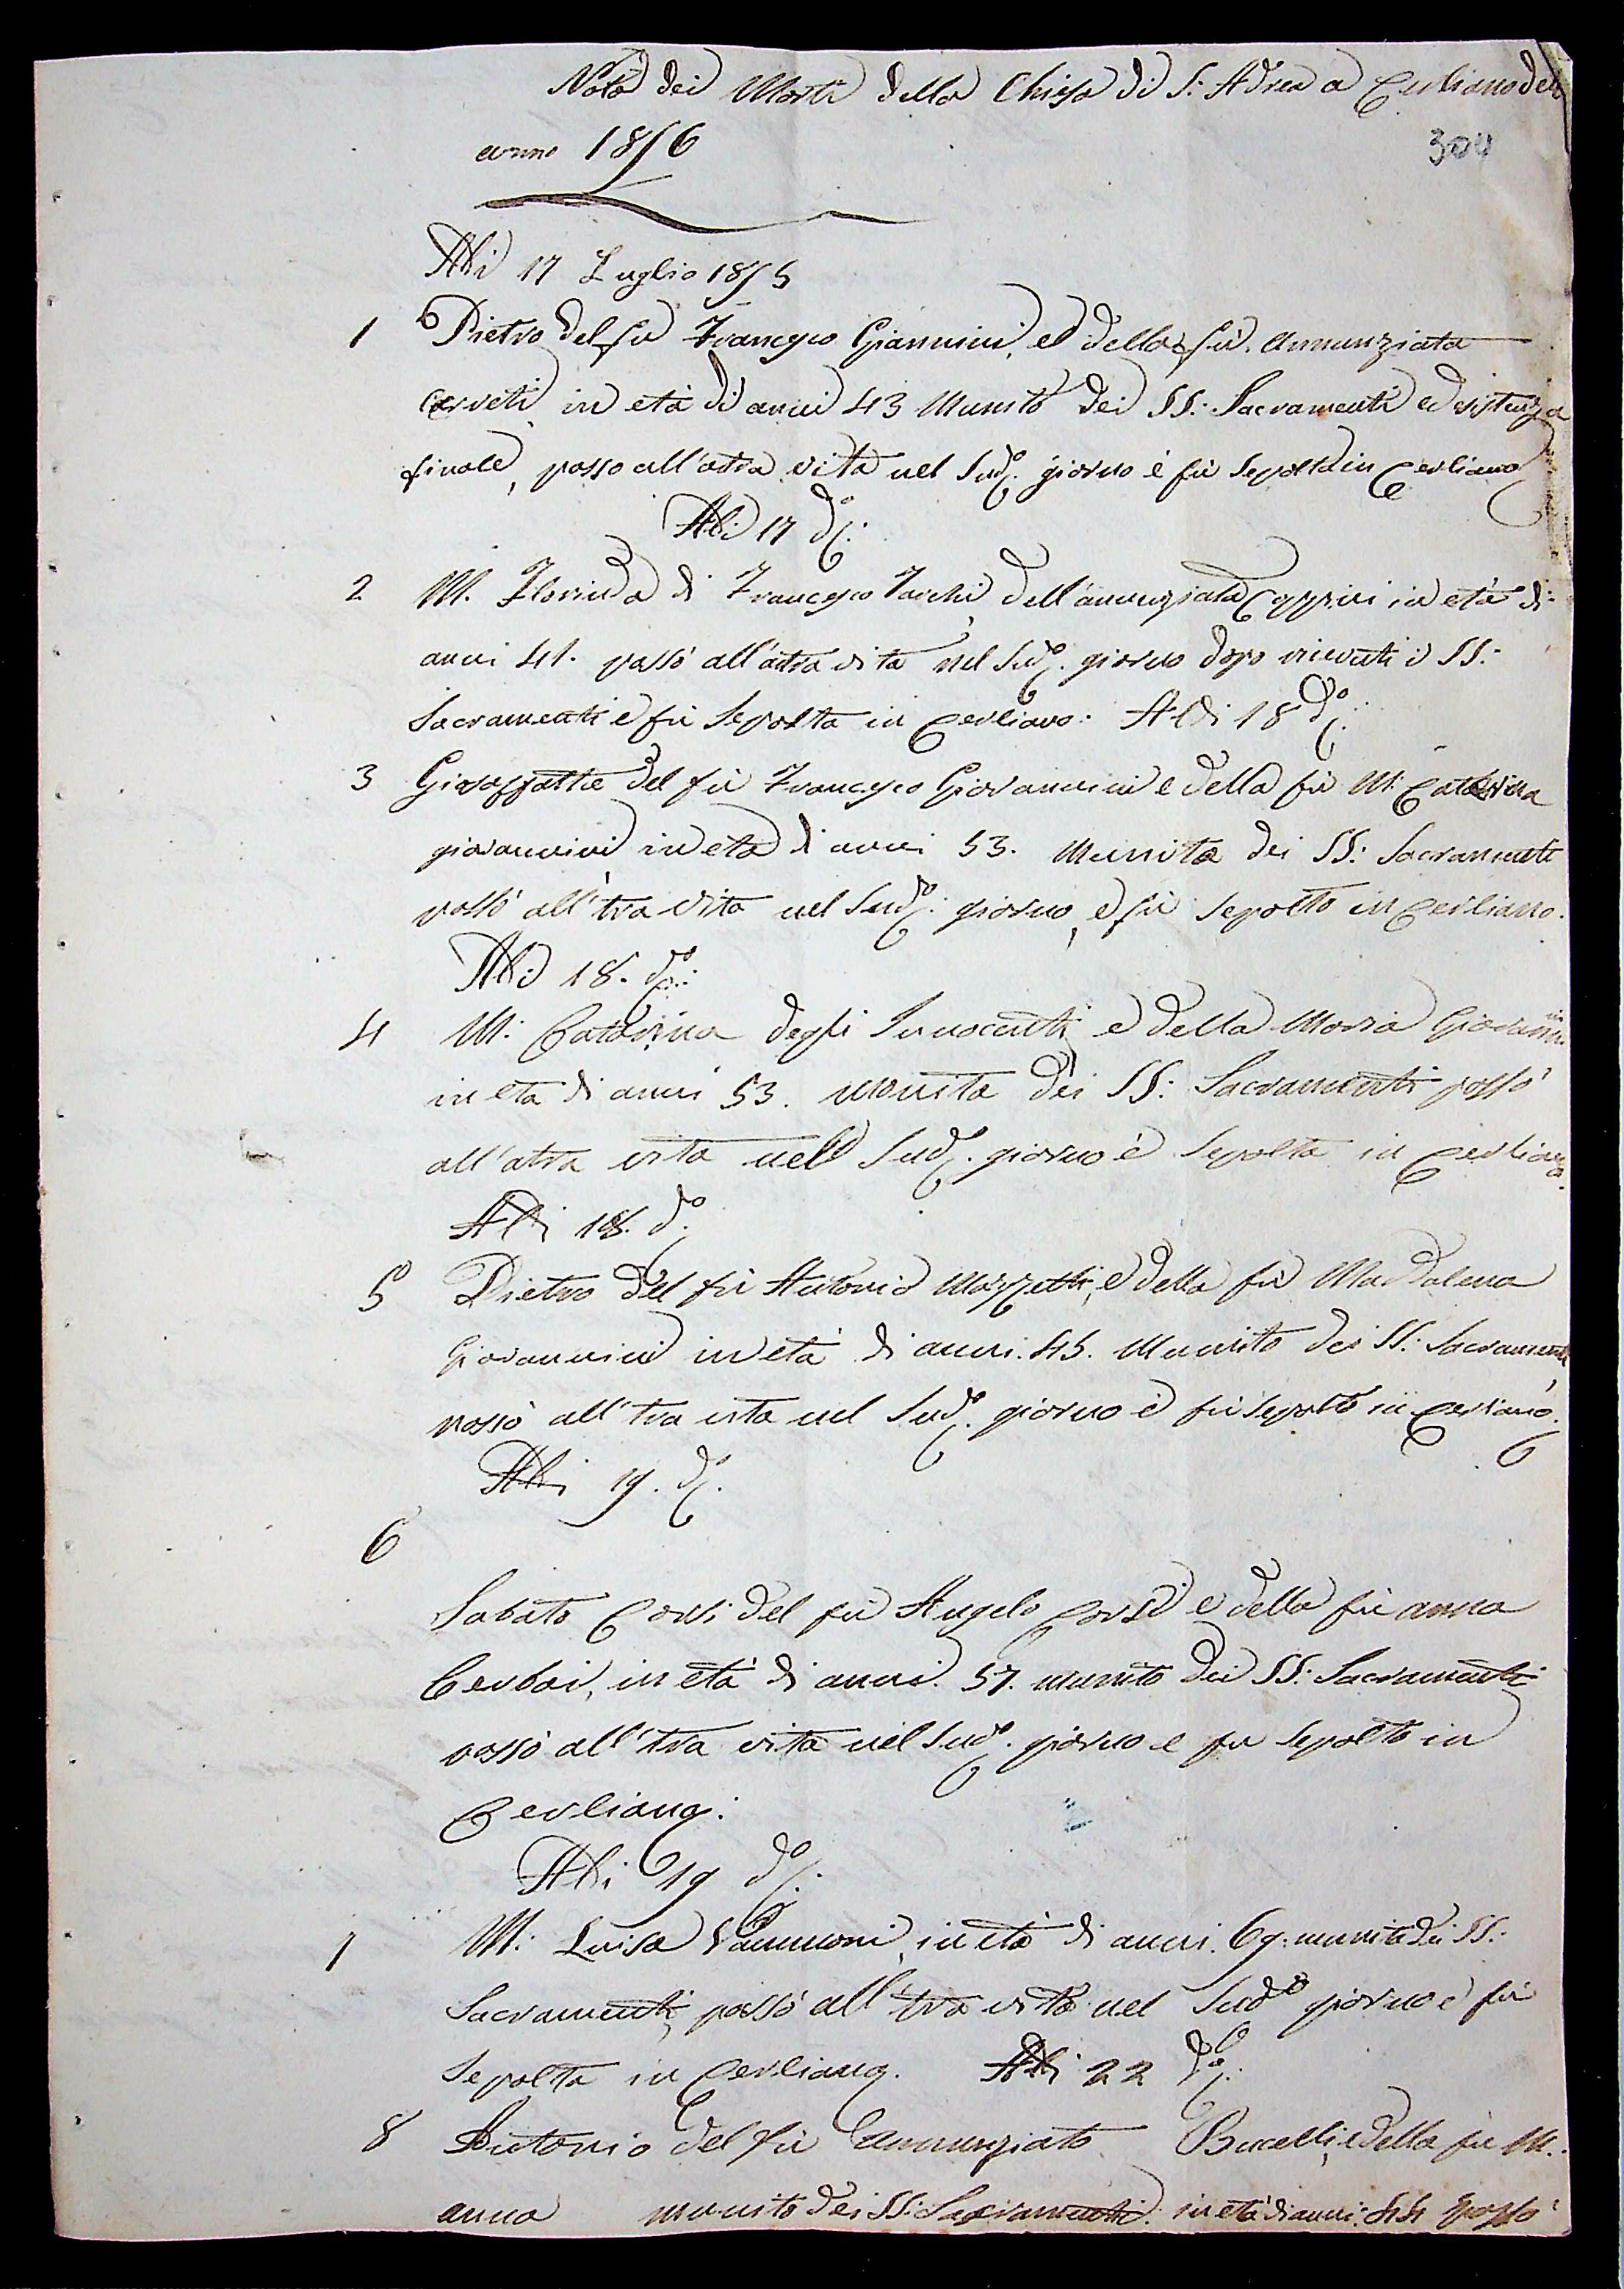 Nota dei Morti della Chiesa di S: Adrea a Cerliano dell
anno 1856
304
Alli 17 Luglio 1855
1 Pietro del fu Francesco Giannini, e della fù Annunziata
Cerreti in età di anni 43 Munito dei SS: Sacramenti ed esistenza
finale, passo all'atra vita nel Sud.º giorno è fù Sepolto in Cerliano
Alli 17 d.º
2 M. Florinda di Francesco Tarchi, dell'annunziata Coppini in età di
anni 41. passò all'atra vita nel Sud.º giorno dopo ricevuti i SS:
Sacramenti e fu Sepolta in Cerliano: Aldi 18 d.º
3 Giosaffatte del fù Francesco Giovannini e della fù M: Catterina
giovannini in età di anni 53. Munita dei SS: Sacramenti
passò all'tra vita nel Sud.º giorno, e fù Sepolto in Cerliano.
Alli 18. d.º
4 M: Catarina degli Innocenti e della Moria Giovannini
in eta di anni 53. Monita dei SS: Sacramenti passò
all'atra vita nell Sud.º giorno è Sepolta in Cerliano.
Alli 18. d.º
5 Pietro del fù Antonio Mazzetti, e della fù Maddalena
Giovannini in età di anni. 45. Munito dei SS: Sacramenti
passò all'tra vita nel Sud.º giorno è fù Sepolto in Cerliano.
Alli 19. d.º
6
Sabato Corsi del fù Angelo Corsi e della fù anna
Cerbai, in età di anni. 57. munito dei SS: Sacramenti
passò all'tra vita nel Sud.º giorno e fu Sepolto in
Cerliano:
Alli 19 d.º
7 M: Luisa Vannoni, in età di anni. 69: munita dei SS:
Sacramenti, passò all'tra vita nel Sud.º giorno e fù
Sepolta in Cerliano. Alli 22 d.º
8 Antonio del fù Annunziato Bucelli, e della fù M.
anna munito dei SS: Sacramenti. in età di anni: 44 passò